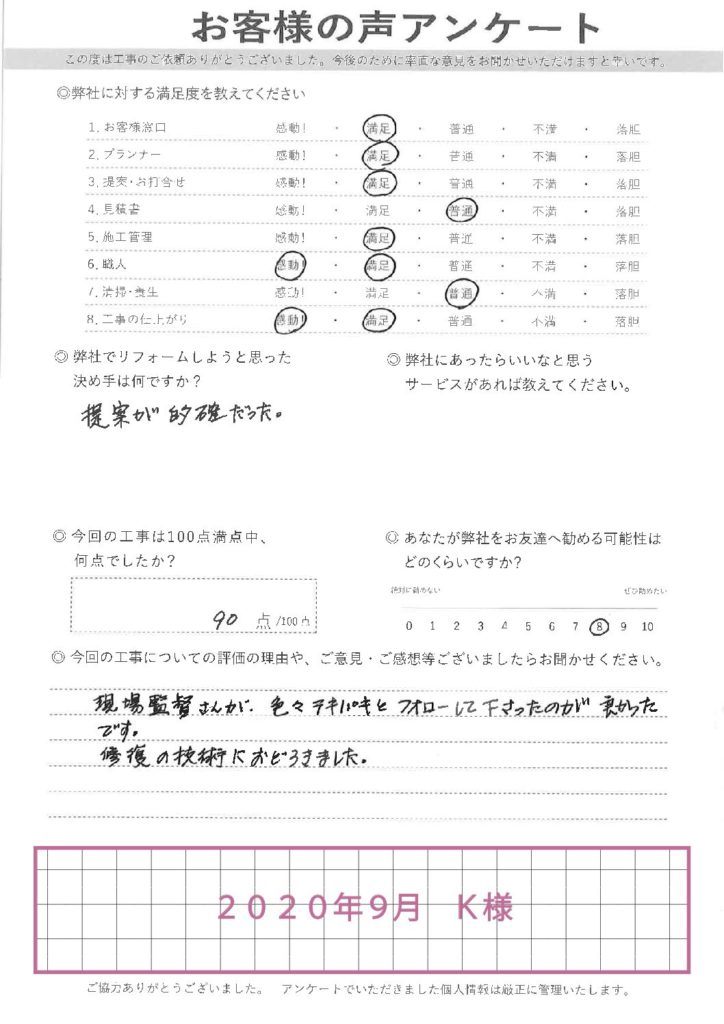 お客様の声アンケート
この度は工事のご依頼ありがとうございました。今後のために率直な意見をお聞かせいただけますと幸いです。
◎弊社に対する満足度を教えてください
1.お客様窓口 感動! ・ 満足 ・ 普通 ・ 不満 ・ 落胆
2.プランナー 感動! ・ 満足 ・ 普通 ・ 不満 ・ 落胆
3.提案・お打合せ 感動! ・ 満足 ・ 普通 ・ 不満 ・ 落胆
4.見積書 感動! ・ 満足 ・ 普通 ・ 不満 ・ 落胆
5.施工管理 感動! ・ 満足 ・ 普通 ・ 不満 ・ 落胆
6.職人 感動! ・ 満足 ・ 普通 ・ 不満 ・ 落胆
7.清掃・養生 感動! ・ 満足 ・ 普通 ・ 不満 ・ 落胆
8.工事の仕上がり 感動! ・ 満足 ・ 普通 ・ 不満 ・ 落胆
◎弊社でリフォームしようと思った
決め手は何ですか?
提案が的確だった。
◎弊社にあったらいいなと思う
サービスがあれば教えてください。
◎今回の工事は100点満点中、
何点でしたか?
90 点 /100点
◎あなたが弊社をお友達へ勧める可能性は
どのくらいですか?
絶対に勧めない ぜひ勧めたい
0 1 2 3 4 5 6 7 8 9 10
◎今回の工事についての評価の理由や、ご意見・ご感想等ございましたらお聞かせください。
現場監督さんが、色々テキパキとフォローして下さったのが良かった
です。
修復の技術におどろきました。
2020年9月 K様
ご協力ありがとうございました。 アンケートでいただきました個人情報は厳正に管理いたします。